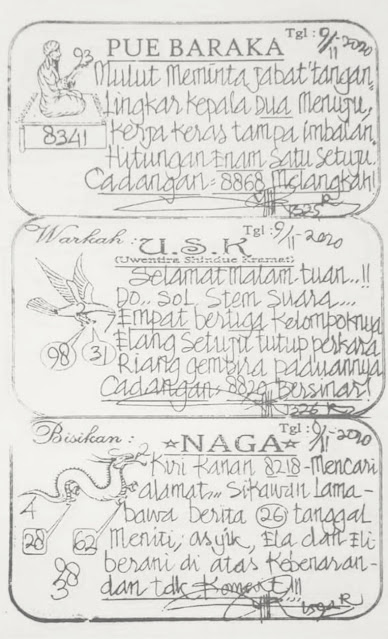 Tgl : 9/11-2020
93
PUE BARAKA
Mulut Meminta jabat tangan
Lingkar kepala Dua Menuju,
8341
Kerja keras tampa imbalan.
Hitungan Enam Satu Setuju.
Cadangan = 8868 Melangkah!
Warkah :
Tgl : 9/11-2020
U.S.K
(Uwentira Shindue Kramat)
Selamat malam tuan...!!
Do.. Sol Stem Suara....
Empat bertiga Kelompoknya
98
31
Elang Setuju tutup perkara
Riang gembira paduannya
Cadangan - 8829 Bersinar!
Bisikan :
Tgl : 9/11-2020
NAGA
Kiri Kanan 8218 - Mencari
alamat... Sikawan Lama-
4
bawa berita 26 tanggal
28
62
Meniti, asyik, Ela dan Eli
berani di atas Kebenaran-
98
dan tdk Koment!!!